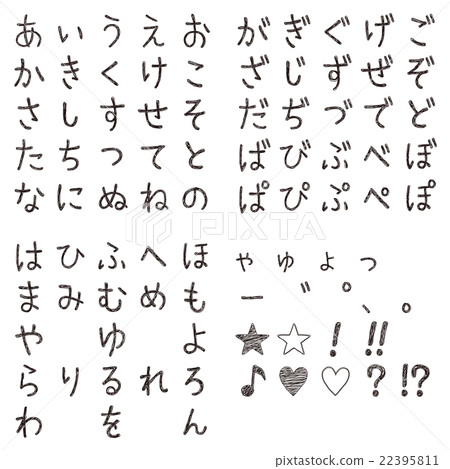 あいうえお
かきくけこ
さしすせそ
たちつてと
なにぬねの
がぎぐげご
ざじずぜぞ
だぢづでど
ばびぶべぼ
ぱぴぷぺぽ
はひふへほ
まみむめも
や ゆ よ
らりるれろ
わ を ん
ゃゅょっ
ー゛゜、。
★☆!!!
♪♥♡?!?
PIXTA
22395811